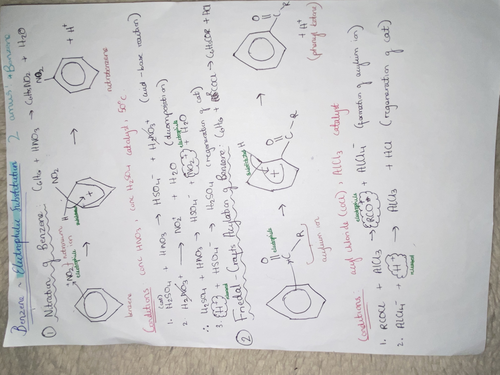 Benzene ~ Electrophilic Substitution 2 ansus: *Benzene
① Nitration of Benzene C6H6 + HNO3 → C6H5NO2 + H2O
+NO2 nitronium ion → H NO2 + → NO2 + H+
electrophile
benzene nitrobenzene
Conditions: conc HNO3, conc H2SO4 catalyst, 50°C
1. H2SO4 + HNO3 → HSO4- + H2NO3+ (acid-base reaction)
2. H2NO3+ → NO2+ + H2O (decomposition)
∴ H2SO4 + HNO3 → HSO4- + NO2+ + H2O
electrophile
3. H+ + HSO4- → H2SO4 (regeneration of cat)
② Friedal-Crafts Acylation of Benzene: C6H6 + RCOCl → C6H5COR + HCl
electrophile O + C R → H O C R + → O C R + H+
acylium ion (phenyl ketone)
Conditions: acyl chloride (COCl), AlCl3 catalyst
electrophile
1. RCOCl + AlCl3 → RCO+ + AlCl4- (formation of acylium ion)
2. AlCl4- + H+ → AlCl3 + HCl (regeneration of cat)